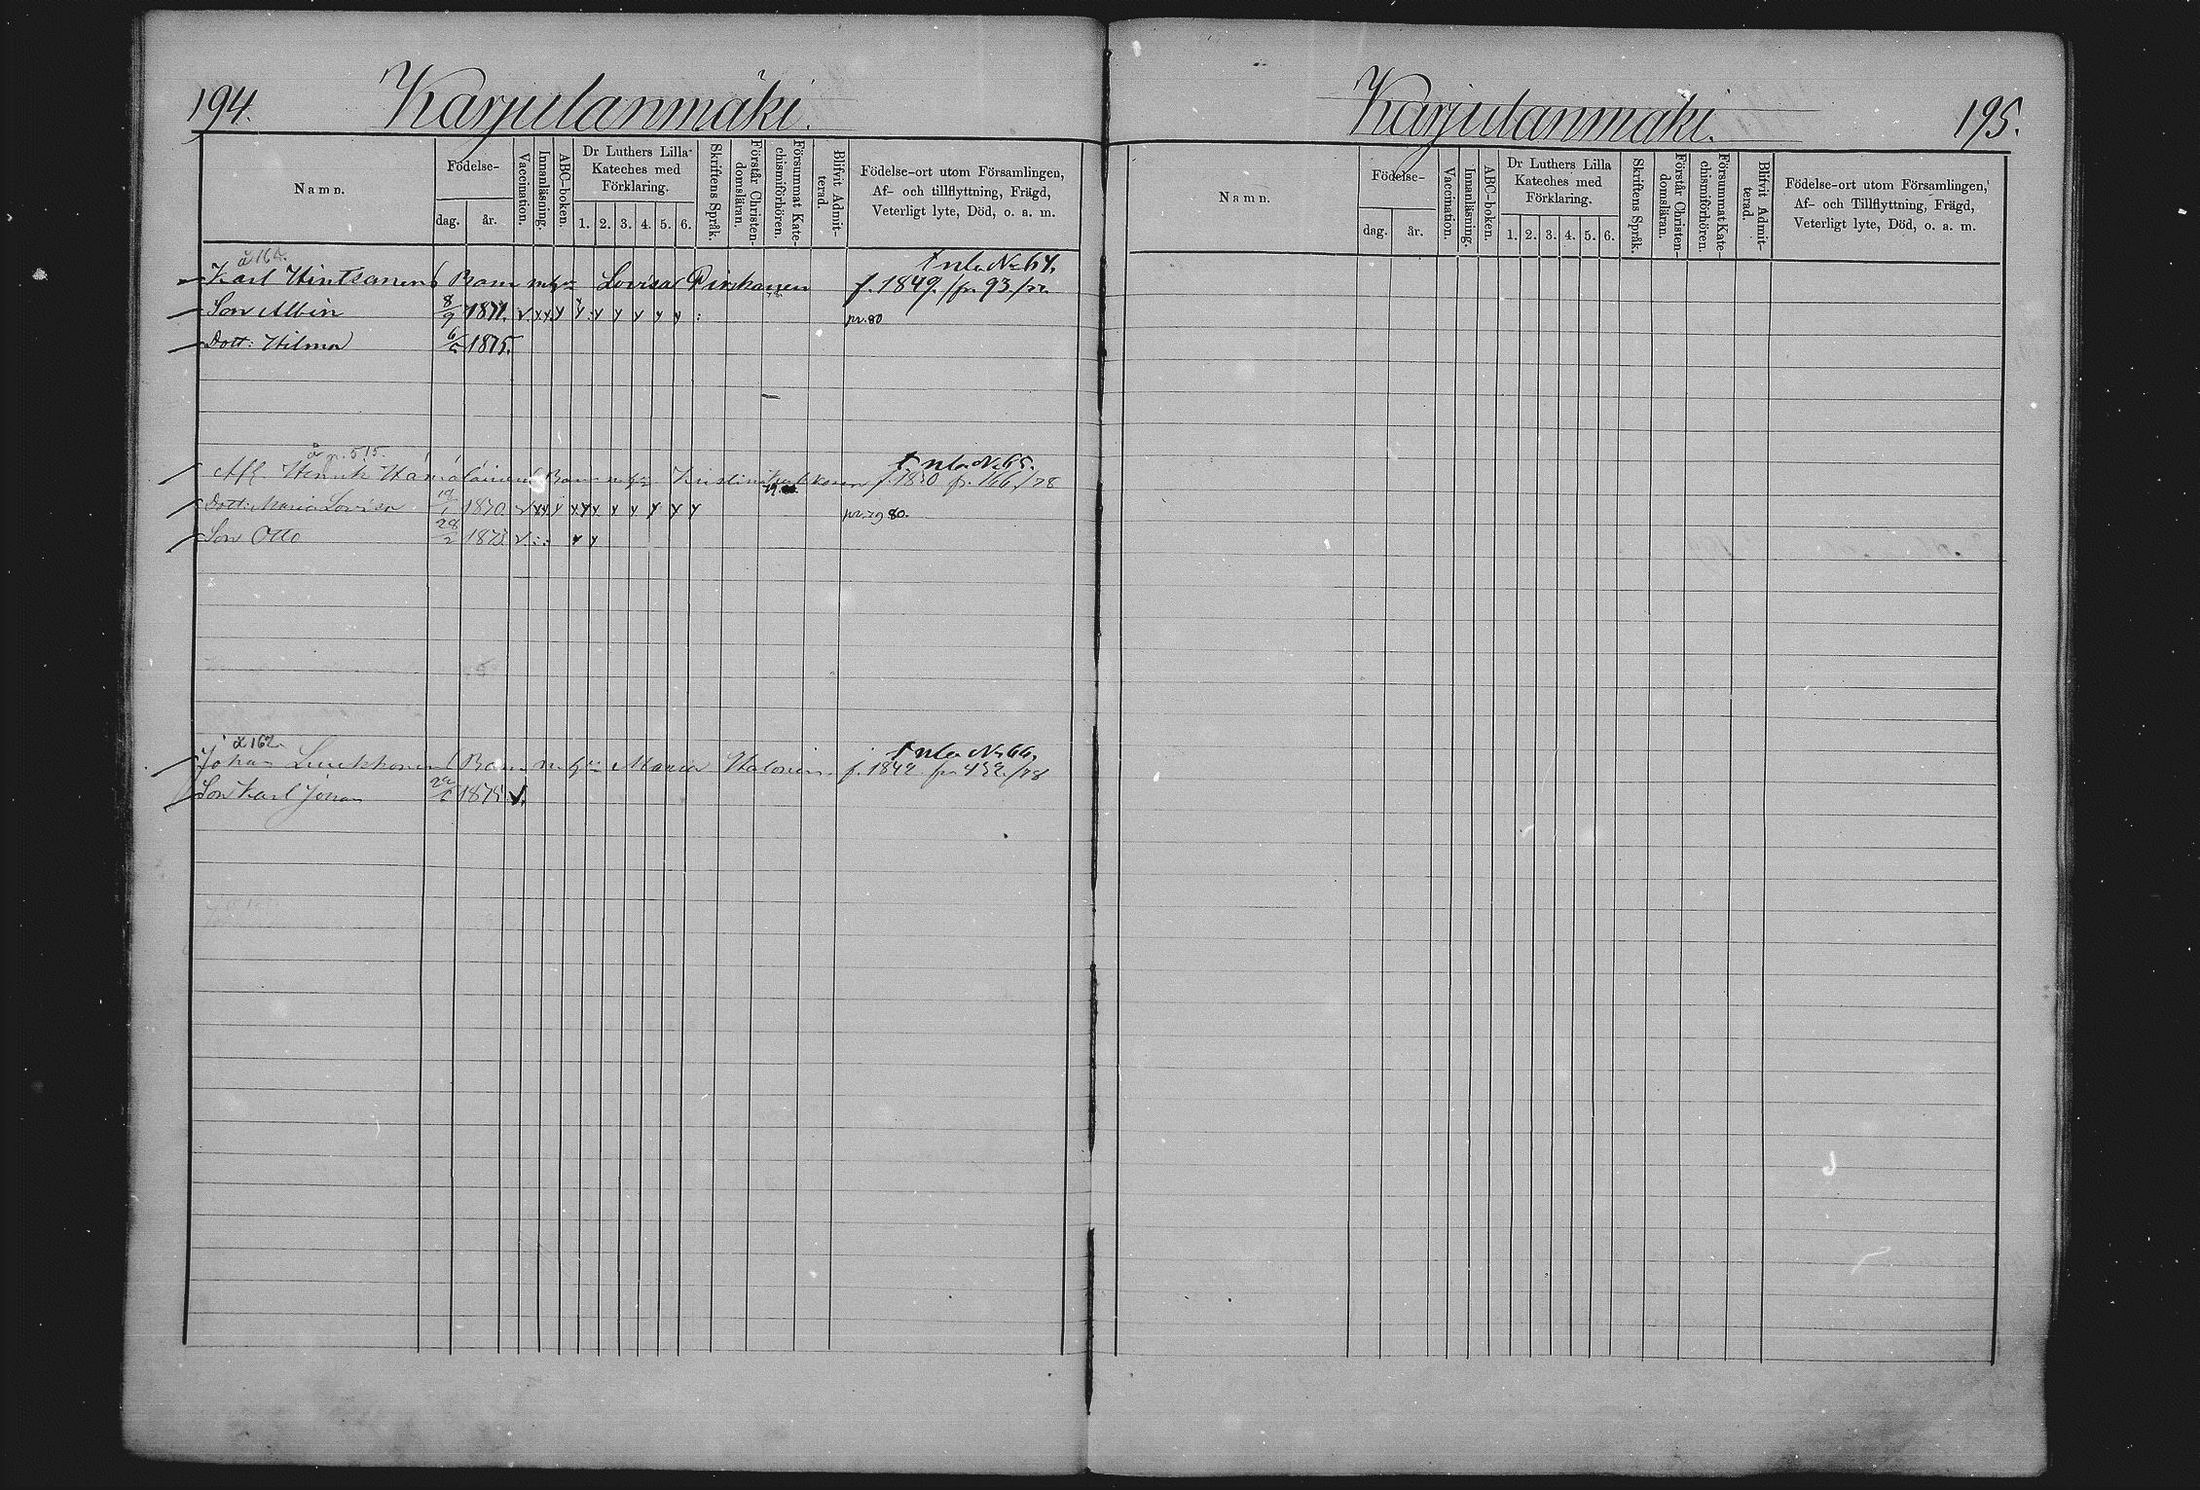 194.
Karjulanmäki.
Namn.
Födelse-
dag.
år.
Vaccination.
Innanläsning.
ABC-boken.
Dr Luthers Lilla
Kateches med
Förklaring.
1. 2. 3. 4. 5. 6.
Skriftens Språk.
Förstår Christen-
domsläran.
Försummat Kate-
chismiförhören.
Blifvit Admit-
terad.
Födelse-ort utom Församlingen,
Af- och tillflyttning, Frägd,
Veterligt lyte, Död, o. a. m.
å 164.
No 64.
Karl Hintsanens Barn m. h. Lovisa Pirskanen f. 1849. fr. 93
Son Albin 8/9 1871. pr. 80
Dott: Hilma 1875.
å p. 515.
No 65.
Afl. Henrik Hämäläinens Barn m. h. Kristina f. 1830 fr. 166/78
Dott: Maria Lovisa 1870 pr. 79 80.
Son Otto 28/2 1873
å 162.
No 66.
Johan Barn m. h. Maria Halonen f. 1842 fr. 452/78
Son Karl Johan 1875
Karjulanmäki.
195.
Namn.
Födelse-
dag.
år.
Vaccination.
Innanläsning.
ABC-boken.
Dr Luthers Lilla
Kateches med
Förklaring.
1. 2. 3. 4. 5. 6.
Skriftens Språk.
Förstår Christen-
domsläran.
Försummat Kate-
chismiförhören.
Blifvit Admit-
terad.
Födelse-ort utom Församlingen,
Af- och Tillflyttning, Frägd,
Veterligt lyte, Död, o. a. m.